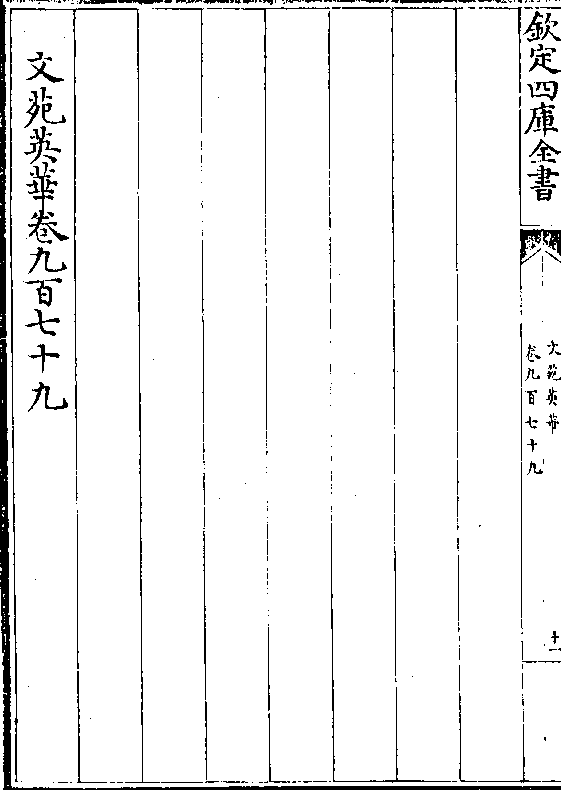 欽定四庫全書
文苑英華
卷九百七十九
十一
文苑英華卷九百七十九